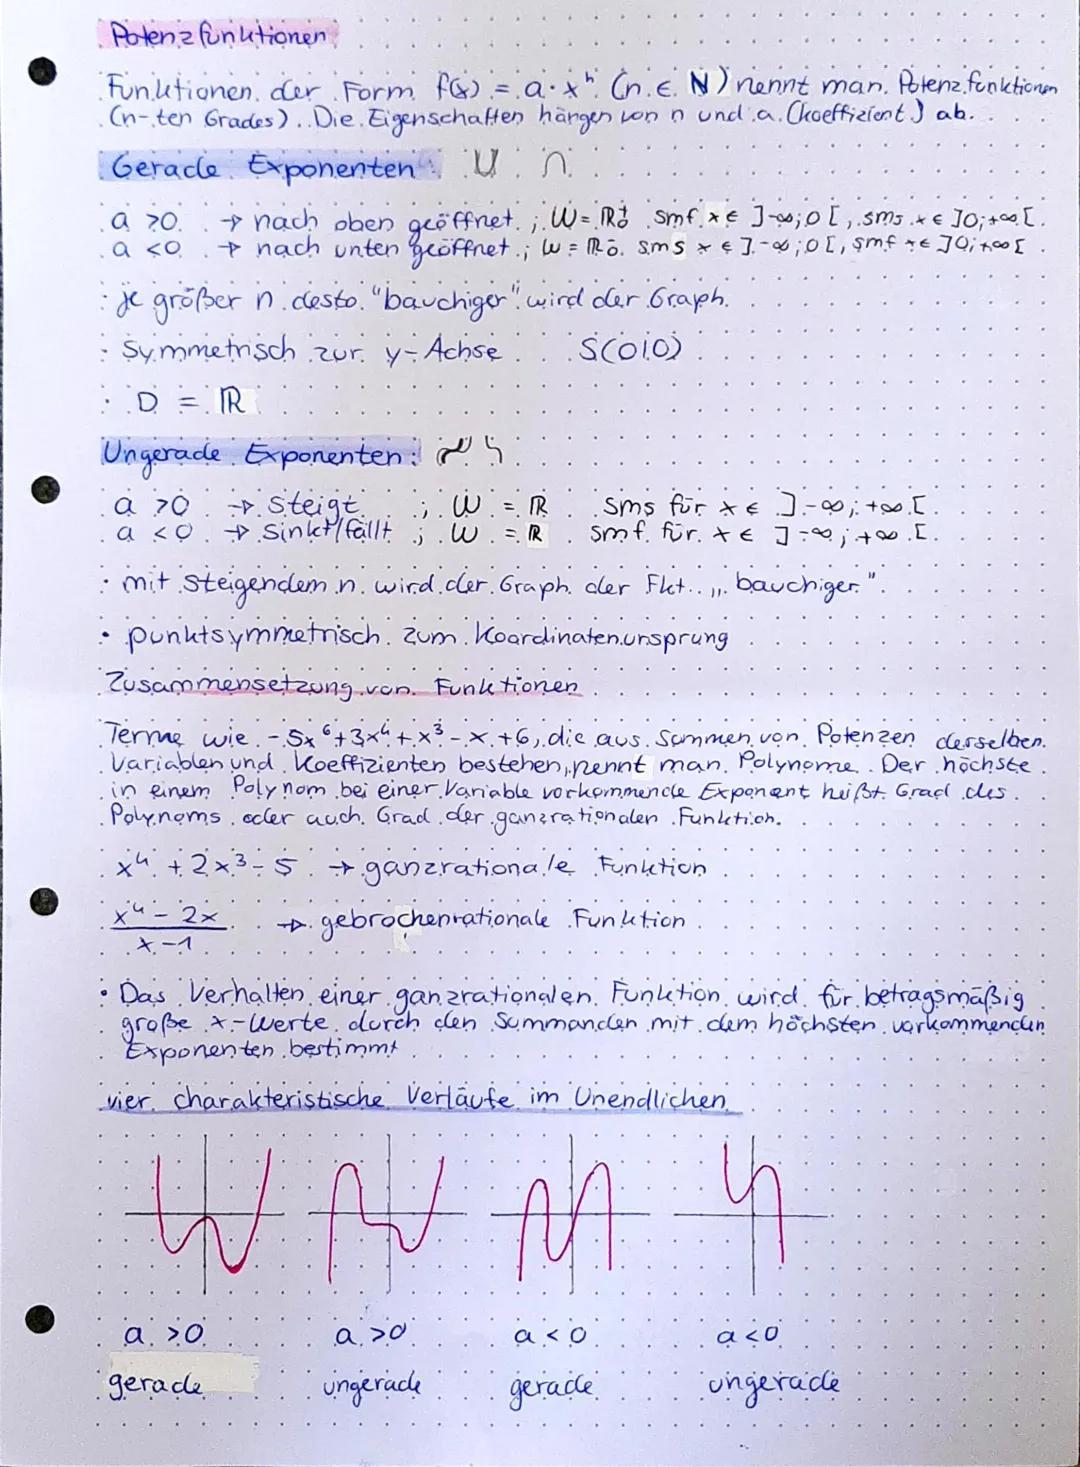 Potenzfunktionen
Funktionen der Form f(x) = a·xⁿ (n ∈ ℕ) nennt man Potenzfunktionen
(n-ten Grades). Die Eigenschaften hängen von n und a (Koeffizient) ab.
Gerade Exponenten:
a >0 → nach oben geöffnet ; W = ℝ₀⁺ smf x ∈ ]-∞;0[, sms x ∈ ]0;+∞[
a <0 → nach unten geöffnet ; W = ℝ₀⁻ sms x ∈ ]-∞;0[, smf x ∈ ]0;+∞[
· je größer n desto "bauchiger" wird der Graph.
· Symmetrisch zur y-Achse S(0|0)
· D = ℝ
Ungerade Exponenten:
a >0 → steigt ; W = ℝ sms für x ∈ ]-∞;+∞[
a <0 → sinkt/fällt ; W = ℝ smf für x ∈ ]-∞;+∞[
· mit steigendem n wird der Graph der Fkt. „bauchiger"
· punktsymmetrisch zum Koordinatenursprung
Zusammensetzung von Funktionen
Terme wie -5x⁶+3x⁴+x³-x+6, die aus Summen von Potenzen derselben
Variablen und Koeffizienten bestehen, nennt man Polynome. Der höchste
in einem Polynom bei einer Variable vorkommende Exponent heißt Grad des
Polynoms oder auch Grad der ganzrationalen Funktion.
x⁴ + 2x³ - 5 → ganzrationale Funktion
x⁴ - 2x → gebrochenrationale Funktion
x - 1
· Das Verhalten einer ganzrationalen Funktion wird für betragsmäßig
große x-Werte durch den Summanden mit dem höchsten vorkommenden
Exponenten bestimmt
vier charakteristische Verläufe im Unendlichen
a >0 a >0 a <0 a <0
gerade ungerade gerade ungerade